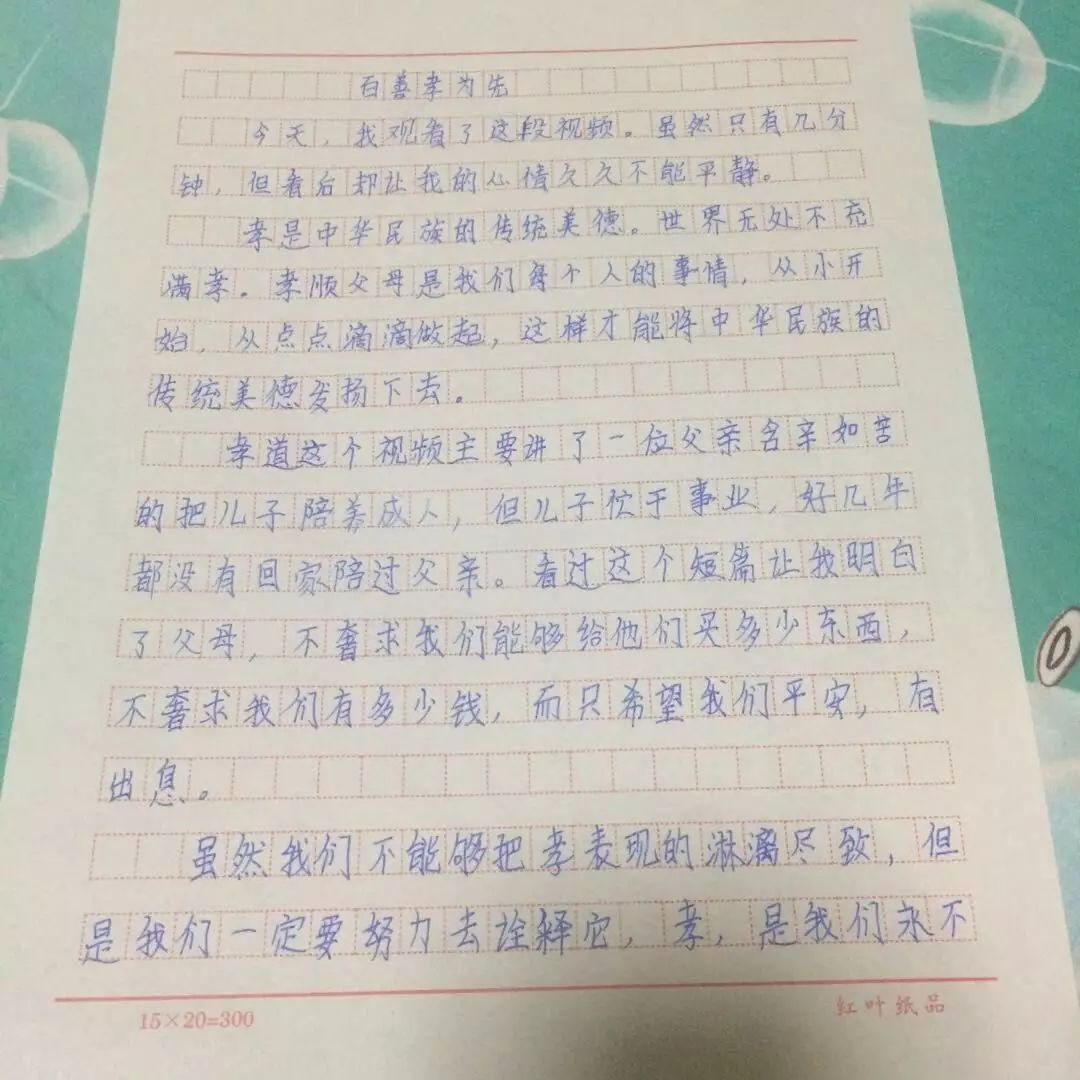 百善孝为先
今天，我观看了这段视频。虽然只有几分
钟，但看后却让我的心情久久不能平静。
孝是中华民族的传统美德。世界无处不充
满孝。孝顺父母是我们每个人的事情，从小开
始，从点点滴滴做起，这样才能将中华民族的
传统美德发扬下去。
孝道这个视频主要讲了一位父亲含亲如苦
的把儿子陪养成人，但儿子忙于事业，好几年
都没有回家陪过父亲。看过这个短篇让我明白
了父母，不奢求我们能够给他们买多少东西，
不奢求我们有多少钱，而只希望我们平安，有
出息。
虽然我们不能够把孝表现的淋漓尽致，但
是我们一定要努力去诠释它，孝，是我们永不
15×20=300
红叶纸品